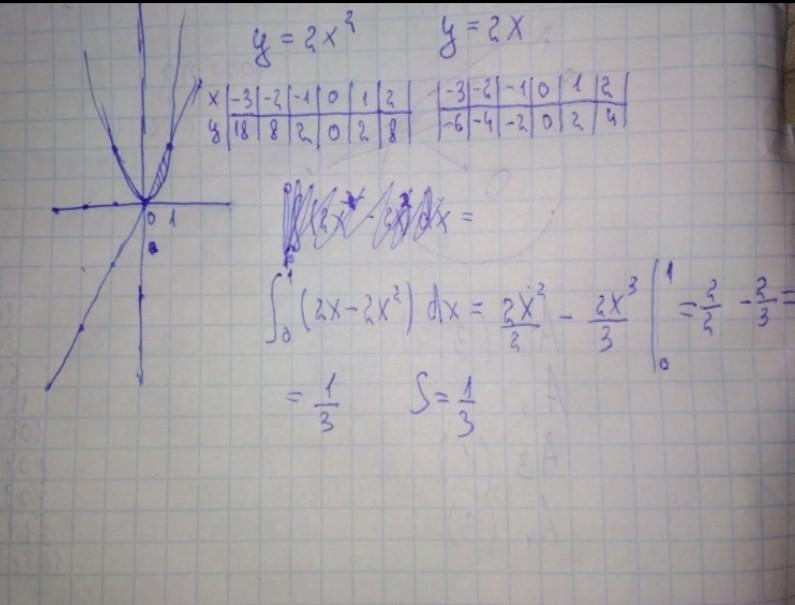 y = 2x² y = 2x
x | -3 | -2 | -1 | 0 | 1 | 2 | | -3 | -2 | -1 | 0 | 1 | 2 |
y | 18 | 8 | 2 | 0 | 2 | 8 | | -6 | -4 | -2 | 0 | 2 | 4 |
0 1
dx =
∫₀¹ (2x - 2x²) dx = 2x²/2 - 2x³/3 |₀¹ = 2/2 - 2/3 =
= 1/3 S = 1/3